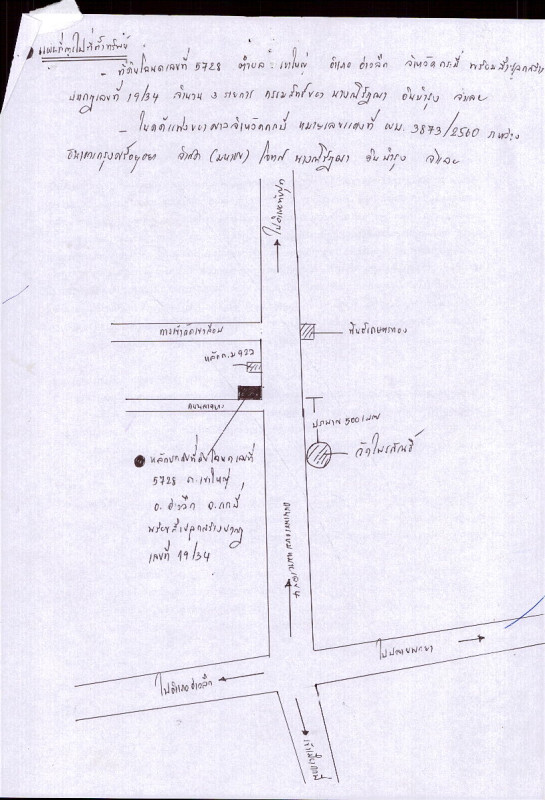 แผนที่ไปที่ตั้งทรัพย์
- ที่ดินโฉนดเลขที่ 5728 ตำบล เขาใหญ่ อำเภอ อ่าวลึก จังหวัดกระบี่ พร้อมสิ่งปลูกสร้าง
เลขที่ 19/34 จำนวน 3 รายการ กรรมสิทธิ์ของ นางณัฏฐา อินบำรุง จำเลย
- ในคดีแพ่งของศาลจังหวัดกระบี่ หมายเลขแดงที่ ผบ. 3873/2560 ระหว่าง
ธนาคารกรุงศรีอยุธยา จำกัด (มหาชน) โจทก์ นางณัฏฐา อินบำรุง จำเลย
ไปอำเภอทับปุด
ทางเข้าวัดเขาล้อม
หลัก ก.ม 922
ประมาณ 500 เมตร
วัดไพรสัณฑ์
หลักเขตที่ดินโฉนดเลขที่
5728 ต.เขาใหญ่
อ. อ่าวลึก จ.กระบี่
พร้อมสิ่งปลูกสร้าง
เลขที่ 19/34
ถนนเพชรเกษม
ไปปลายพระยา
ไปอำเภออ่าวลึก